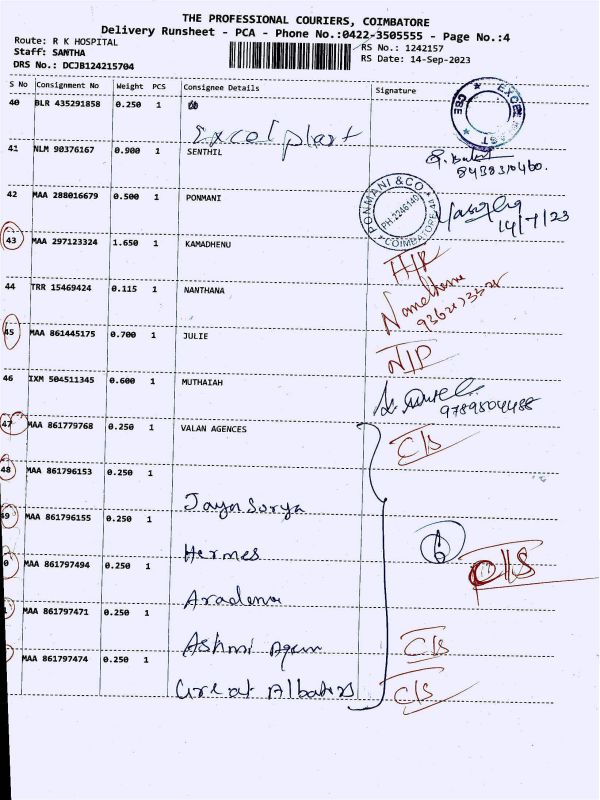 THE PROFESSIONAL COURIERS, COIMBATORE
Delivery Runsheet - PCA - Phone No.:0422-3505555 - Page No.:4
Route: R K HOSPITAL
Staff: SANTHA
RS No.: 1242157
DRS No.: DCJB124215704
RS Date: 14-Sep-2023
S No Consignment No Weight PCS Consignee Details Signature
40 BLR 435291858 0.250 1
Excel plast
EXCEL
CBE
41 NLM 90376167 0.900 1 SENTHIL
42 MAA 288016679 0.500 1 PONMANI
PONMANI & CO
PH:2246140
COIMBATORE
43 MAA 297123324 1.650 1 KAMADHENU
44 TRR 15469424 0.115 1 NANTHANA
45 MAA 861445175 0.700 1 JULIE
46 IXM 504511345 0.600 1 MUTHAIAH
9789504488
47 MAA 861779768 0.250 1 VALAN AGENCES
C/S
48 MAA 861796153 0.250 1
Jaya Surya
49 MAA 861796155 0.250 1
Hermes
6
C/S
0 MAA 861797494 0.250 1
MAA 861797471 0.250 1
Ashmi Agen
C/S
MAA 861797474 0.250 1
Great
C/S